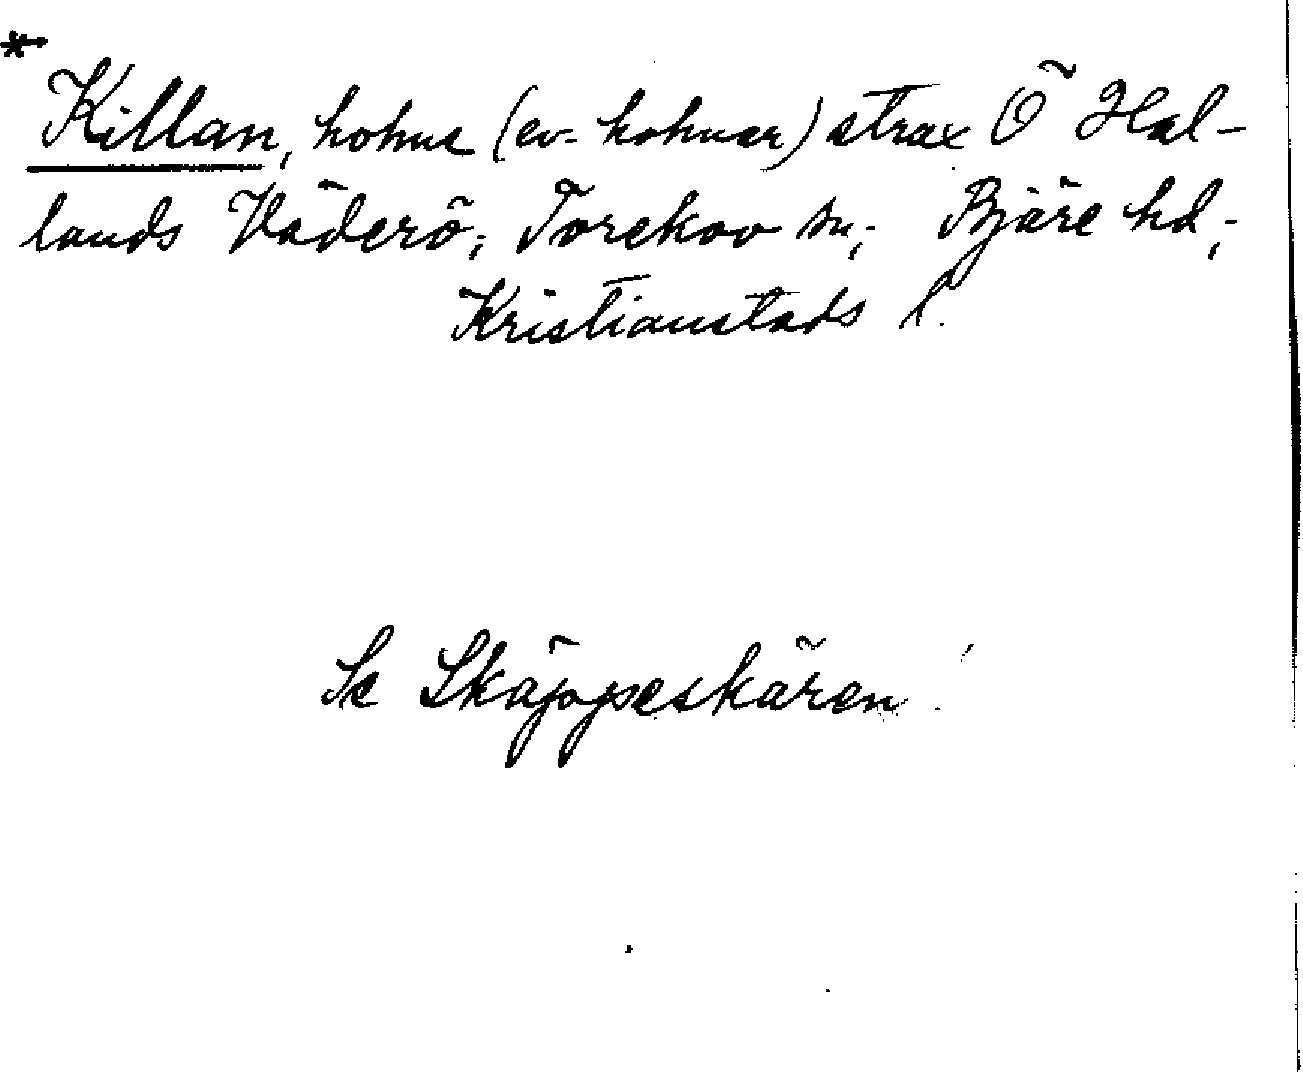 * Killan, holme (ev. holmar) strax Ö Hal-
lands Väderö, Torekov sn, Bjäre hd,
Kristianstads l.
Se Skäppeskären!